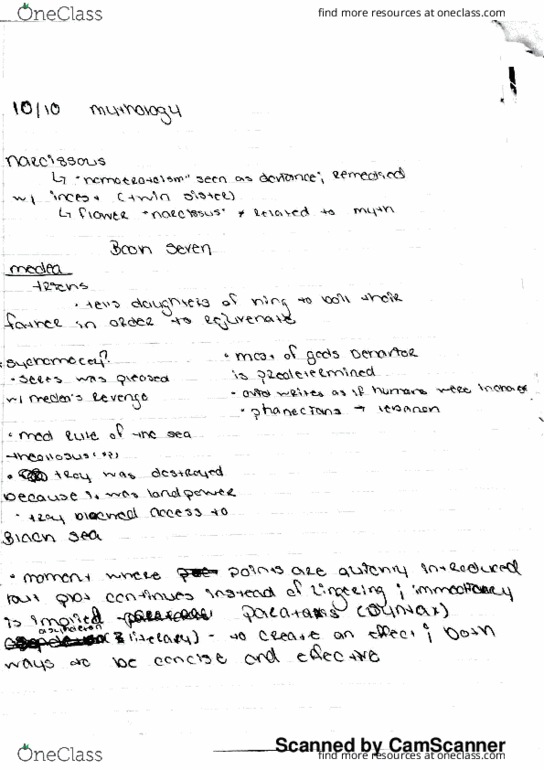 OneClass
find more resources at oneclass.com
10/10 mythology
narcissous
↳ "homoeroticism" seen as deviance; remedised
w/ incest (twin sister)
↳ flower "narcissus" * related to myth
Book seven
medea
• tells daughters of king to boil their
father in order to rejuvenate
• seems was pleased
w/ medea's revenge
• most of gods behavior
is predetermined
• ovid writes as if humans were
• phanecians → lebanon
• med rule of the sea
• troy was destroyed
because it was land power
• troy blocked access to
Black sea
• moment where points are quickly introduced
but plot continues instead of lingering; immediancy
is implied - parataxis (syntax)
asyndeton (literary) - to create an effect; both
ways to be concise and effective
Scanned by CamScanner
OneClass
find more resources at oneclass.com